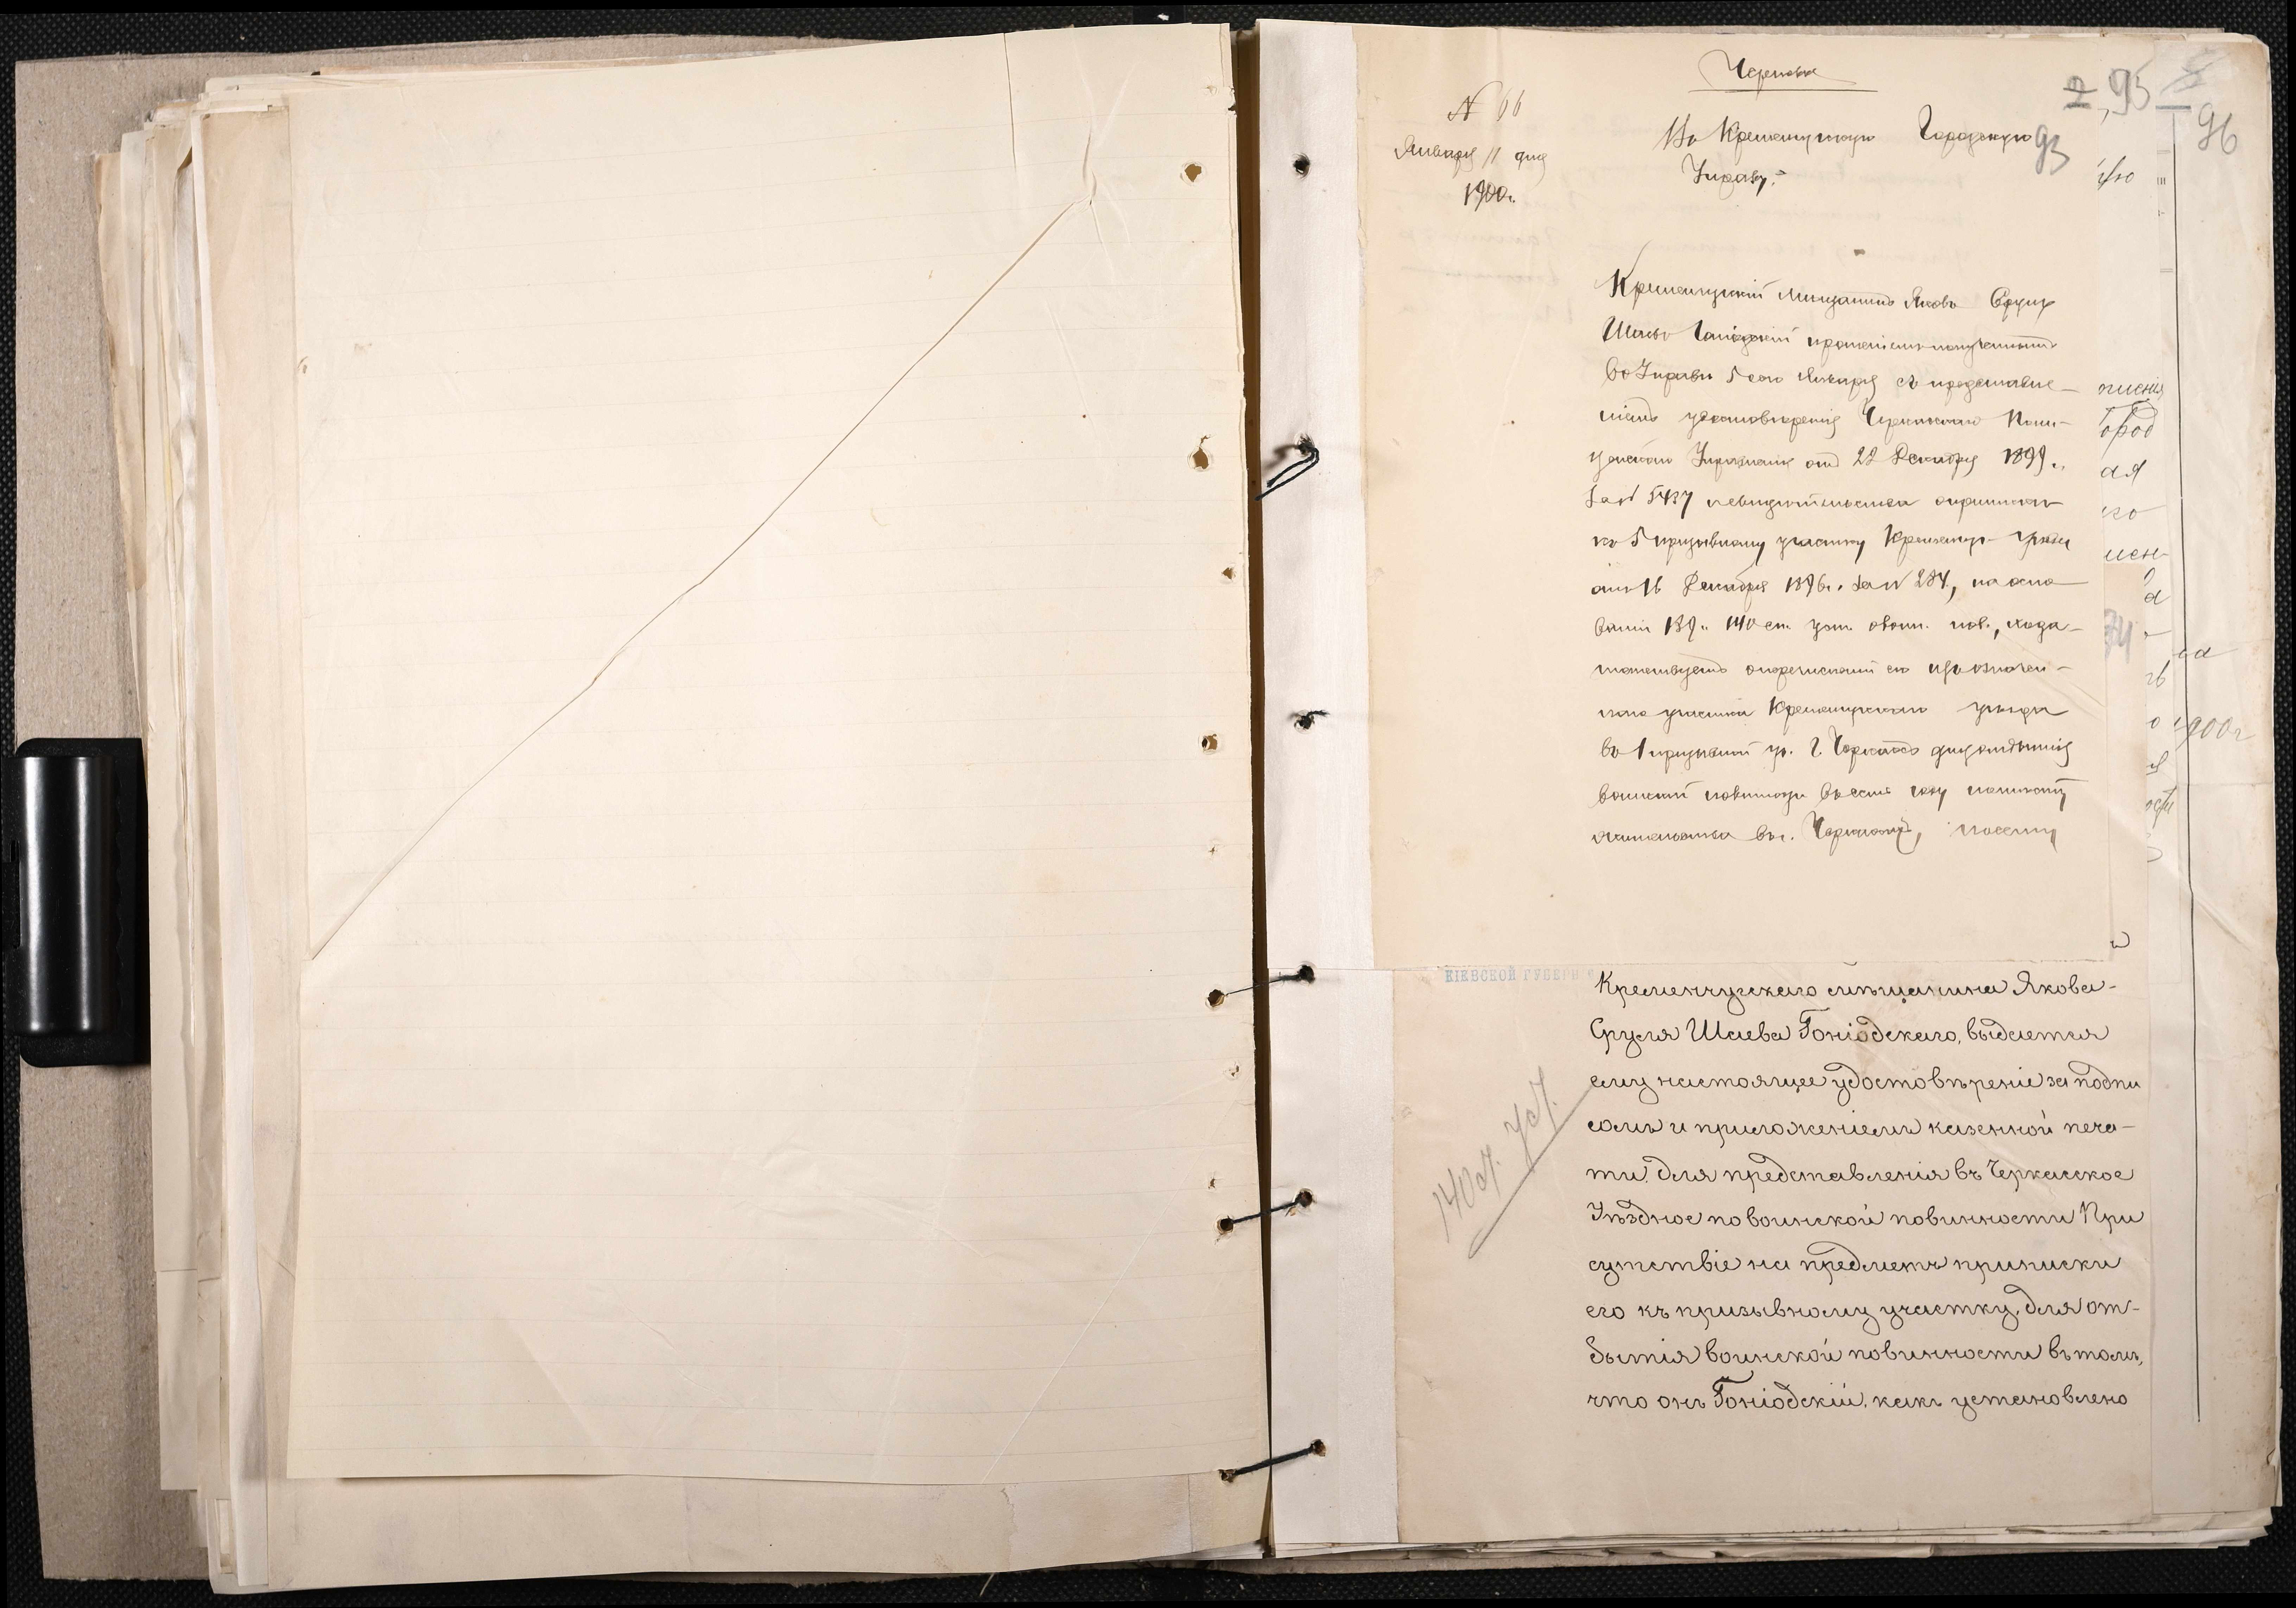 Черновая
N 66
Января 11 дня
1900 г.
Въ Кременчугскую Городскую
Управу.
2, 95
93
96
Кременчугскій мѣщанинъ Яковъ Сруль
Шаевъ Гоніодскій прошеніемъ полученнымъ
въ Управѣ 5 сего Января съ представле-
ніемъ удостовѣренія Черкасскаго Поли-
цейскаго Управленія отъ 22 Декабря 1899 г.
за N 5437 и свидѣтельства о припискѣ
къ 5 призывному участку Кременчуг. уѣзда
отъ 16 Декабря 1896 г. за N 284, на осно
ваніи 139 и 140 ст. уст. о воин. пов., хода-
тайствуетъ о перечисленіи его изъ означен-
наго участка Кременчугскаго уѣзда
въ 1 призывной уч. г. Черкассъ для отбытія
воинской повинности въ семъ году по мѣсту
жительства въ г. Черкассахъ, посему
ященія
Город
ая
его
мен-
74
на
1900 г
КІЕВСКОЙ ГУБЕРН
Кременчугскаго мѣщанина Якова-
Сруля Шаева Гоніодскаго, выдается
ему настоящее удостовѣреніе за подпи
сомъ и приложеніемъ казенной печа-
ти для представленія въ Черкасское
Уѣздное по воинской повинности При
сутствіе на предметъ приписки
его къ призывному участку, для от-
бытія воинской повинности въ томъ,
что онъ Гоніодскій, какъ установлено